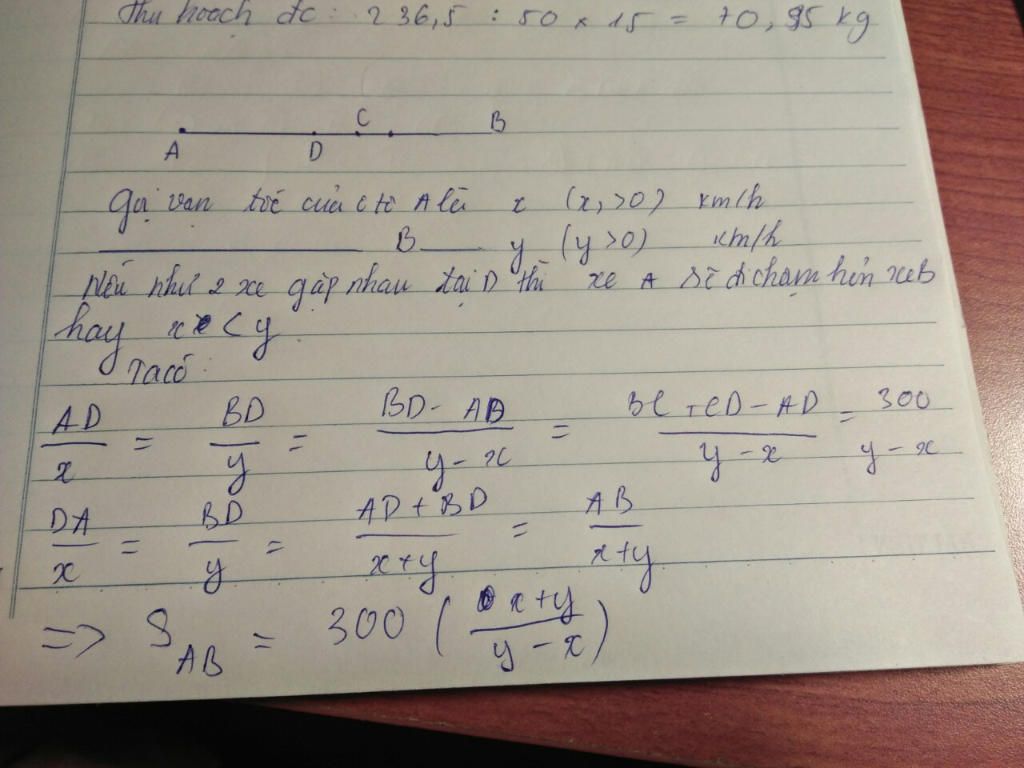 thu hoạch đc : 236,5 : 50 × 15 = 70,95 kg
C B
A D
Gọi vận tốc của ô tô A là x (x,>0) km/h
B y (y>0) km/h
Nếu như 2 xe gặp nhau tại D thì xe A sẽ đi chậm hơn xe B
hay x < y
Ta có
AD/x = BD/y = BD - AD/y - x = BC + CD - AD/y - x = 300/y - x
DA/x = BD/y = AD + BD/x+y = AB/x+y
=> S_AB = 300 (x+y/y - x)